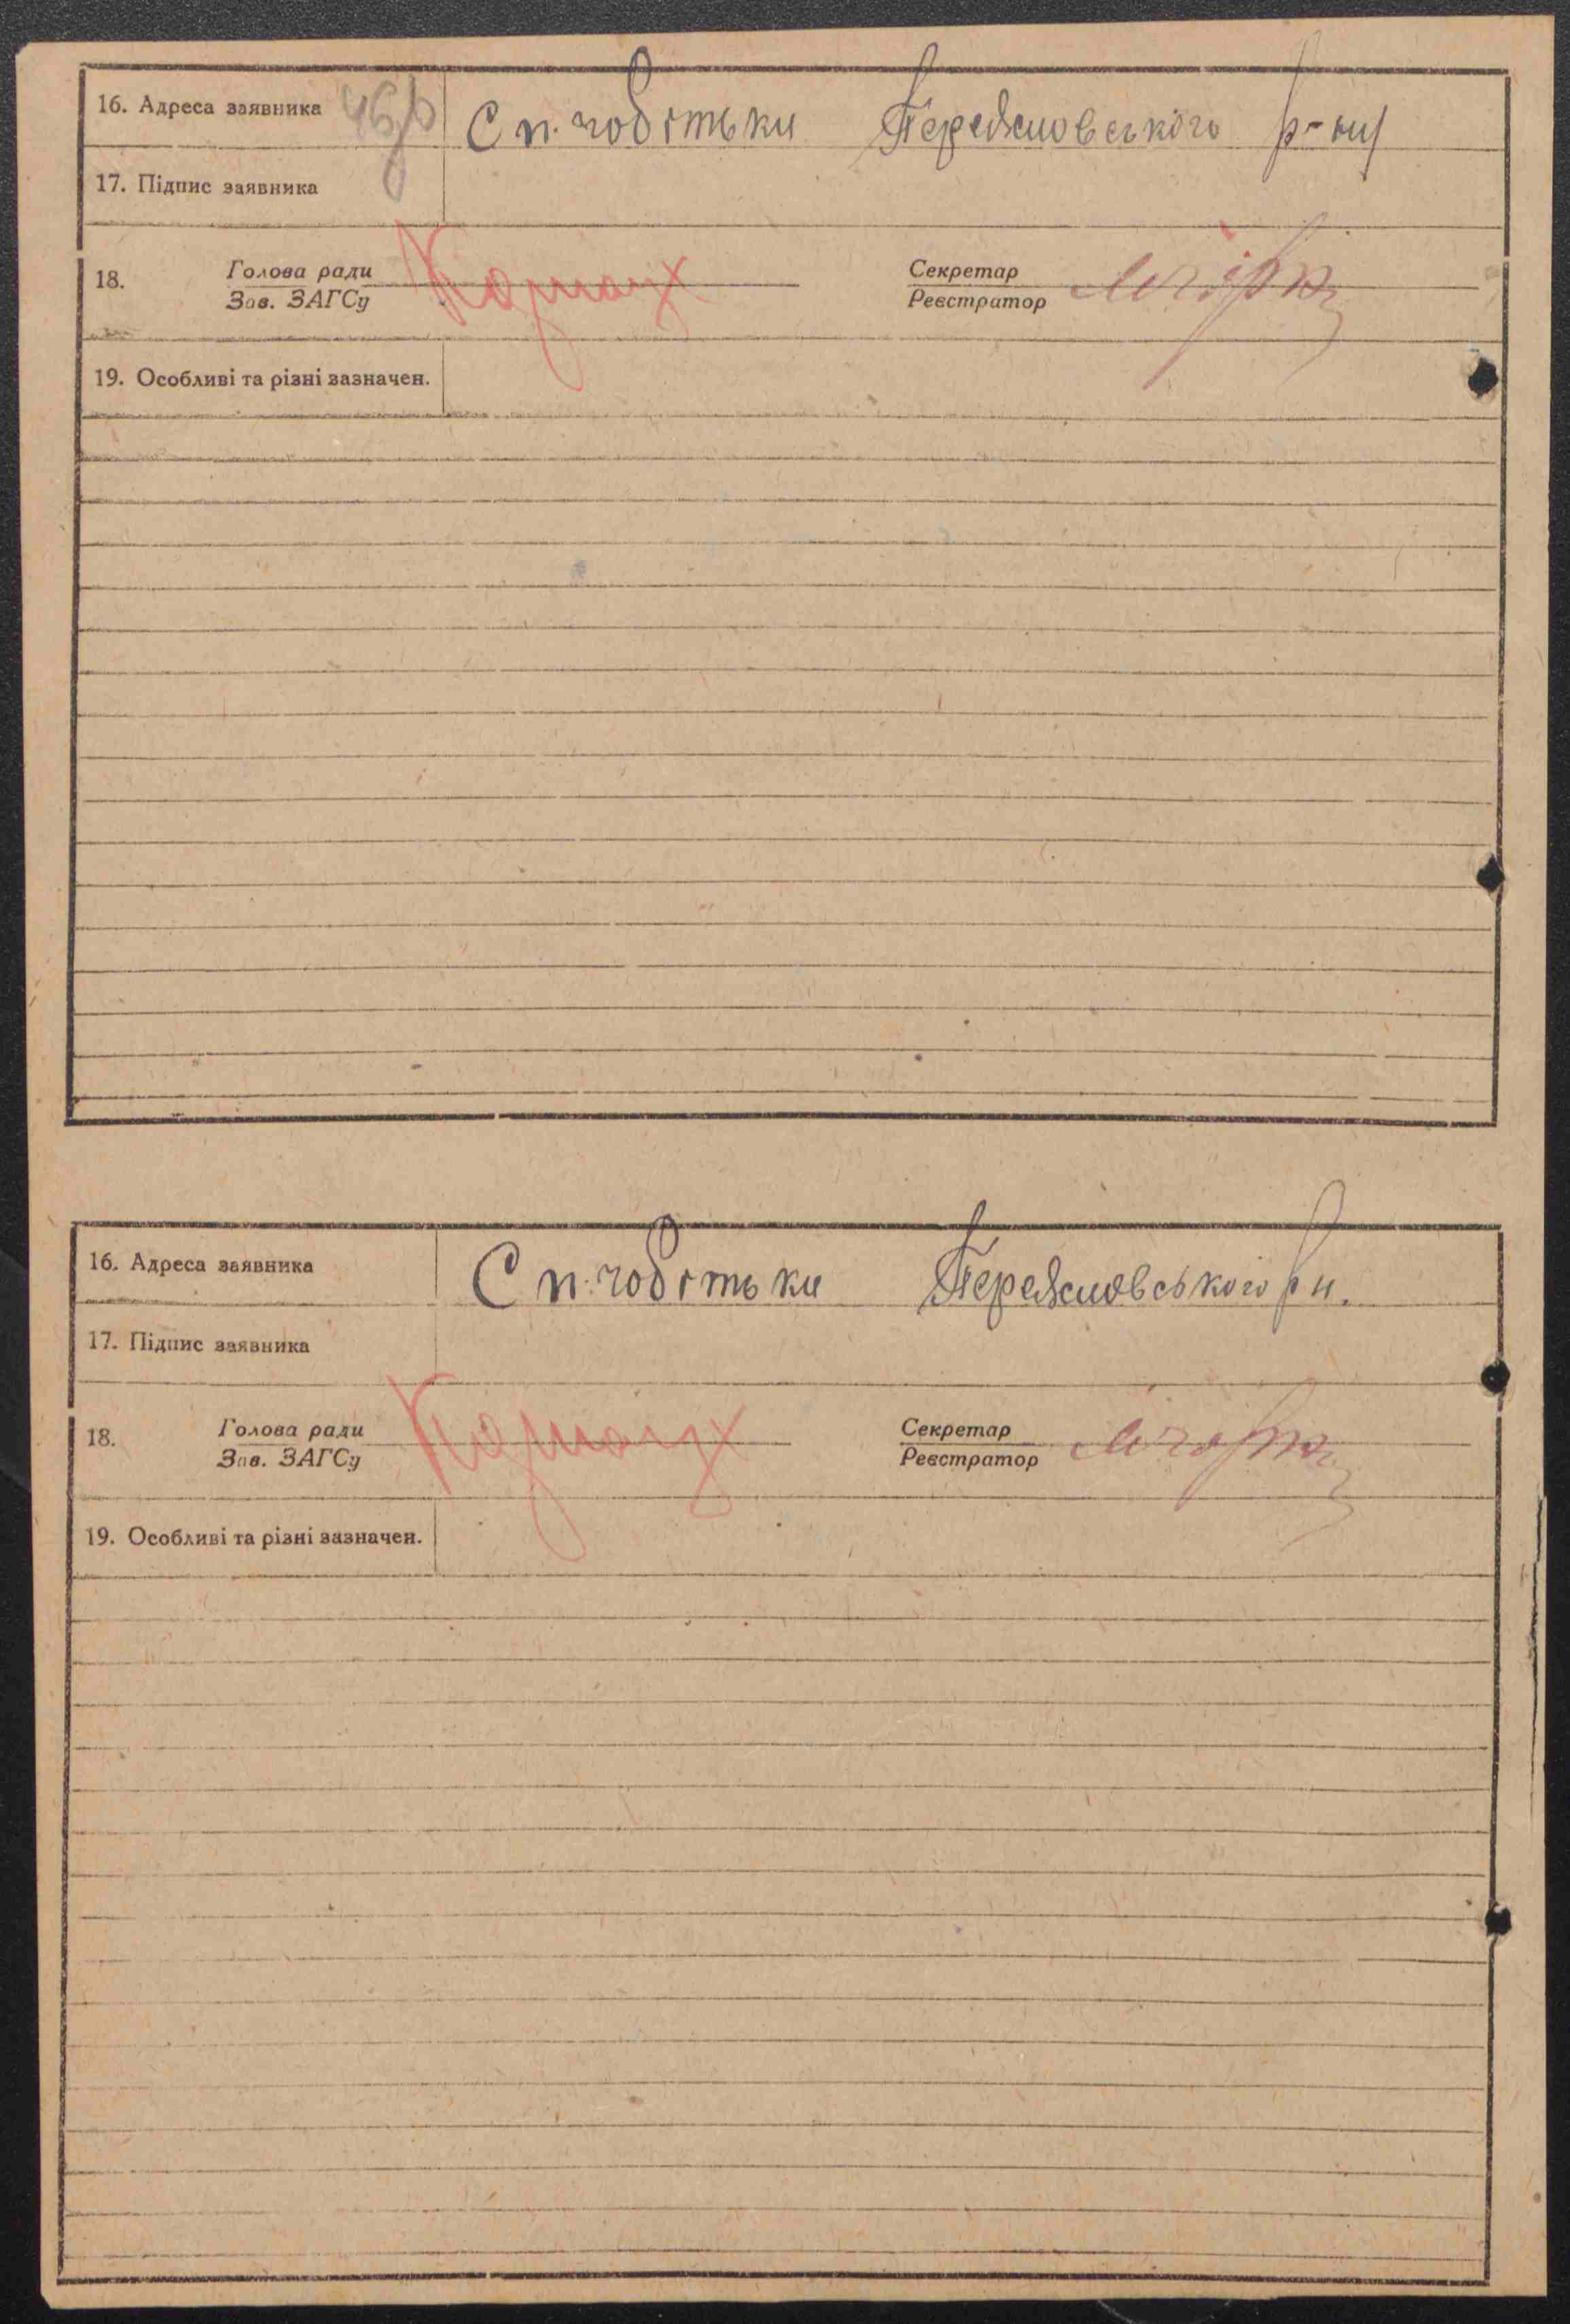 16. Адреса заявника С п. чобітьки Переяславського р-ну
17. Підпис заявника
18. Голова ради Секретар
Зав. ЗАГСу Реєстратор
19. Особливі та різні зазначен.
16. Адреса заявника С п. чобітьки Переяславського р н.
17. Підпис заявника
18. Голова ради Секретар
Зав. ЗАГСу Реєстратор
19. Особливі та різні зазначен.